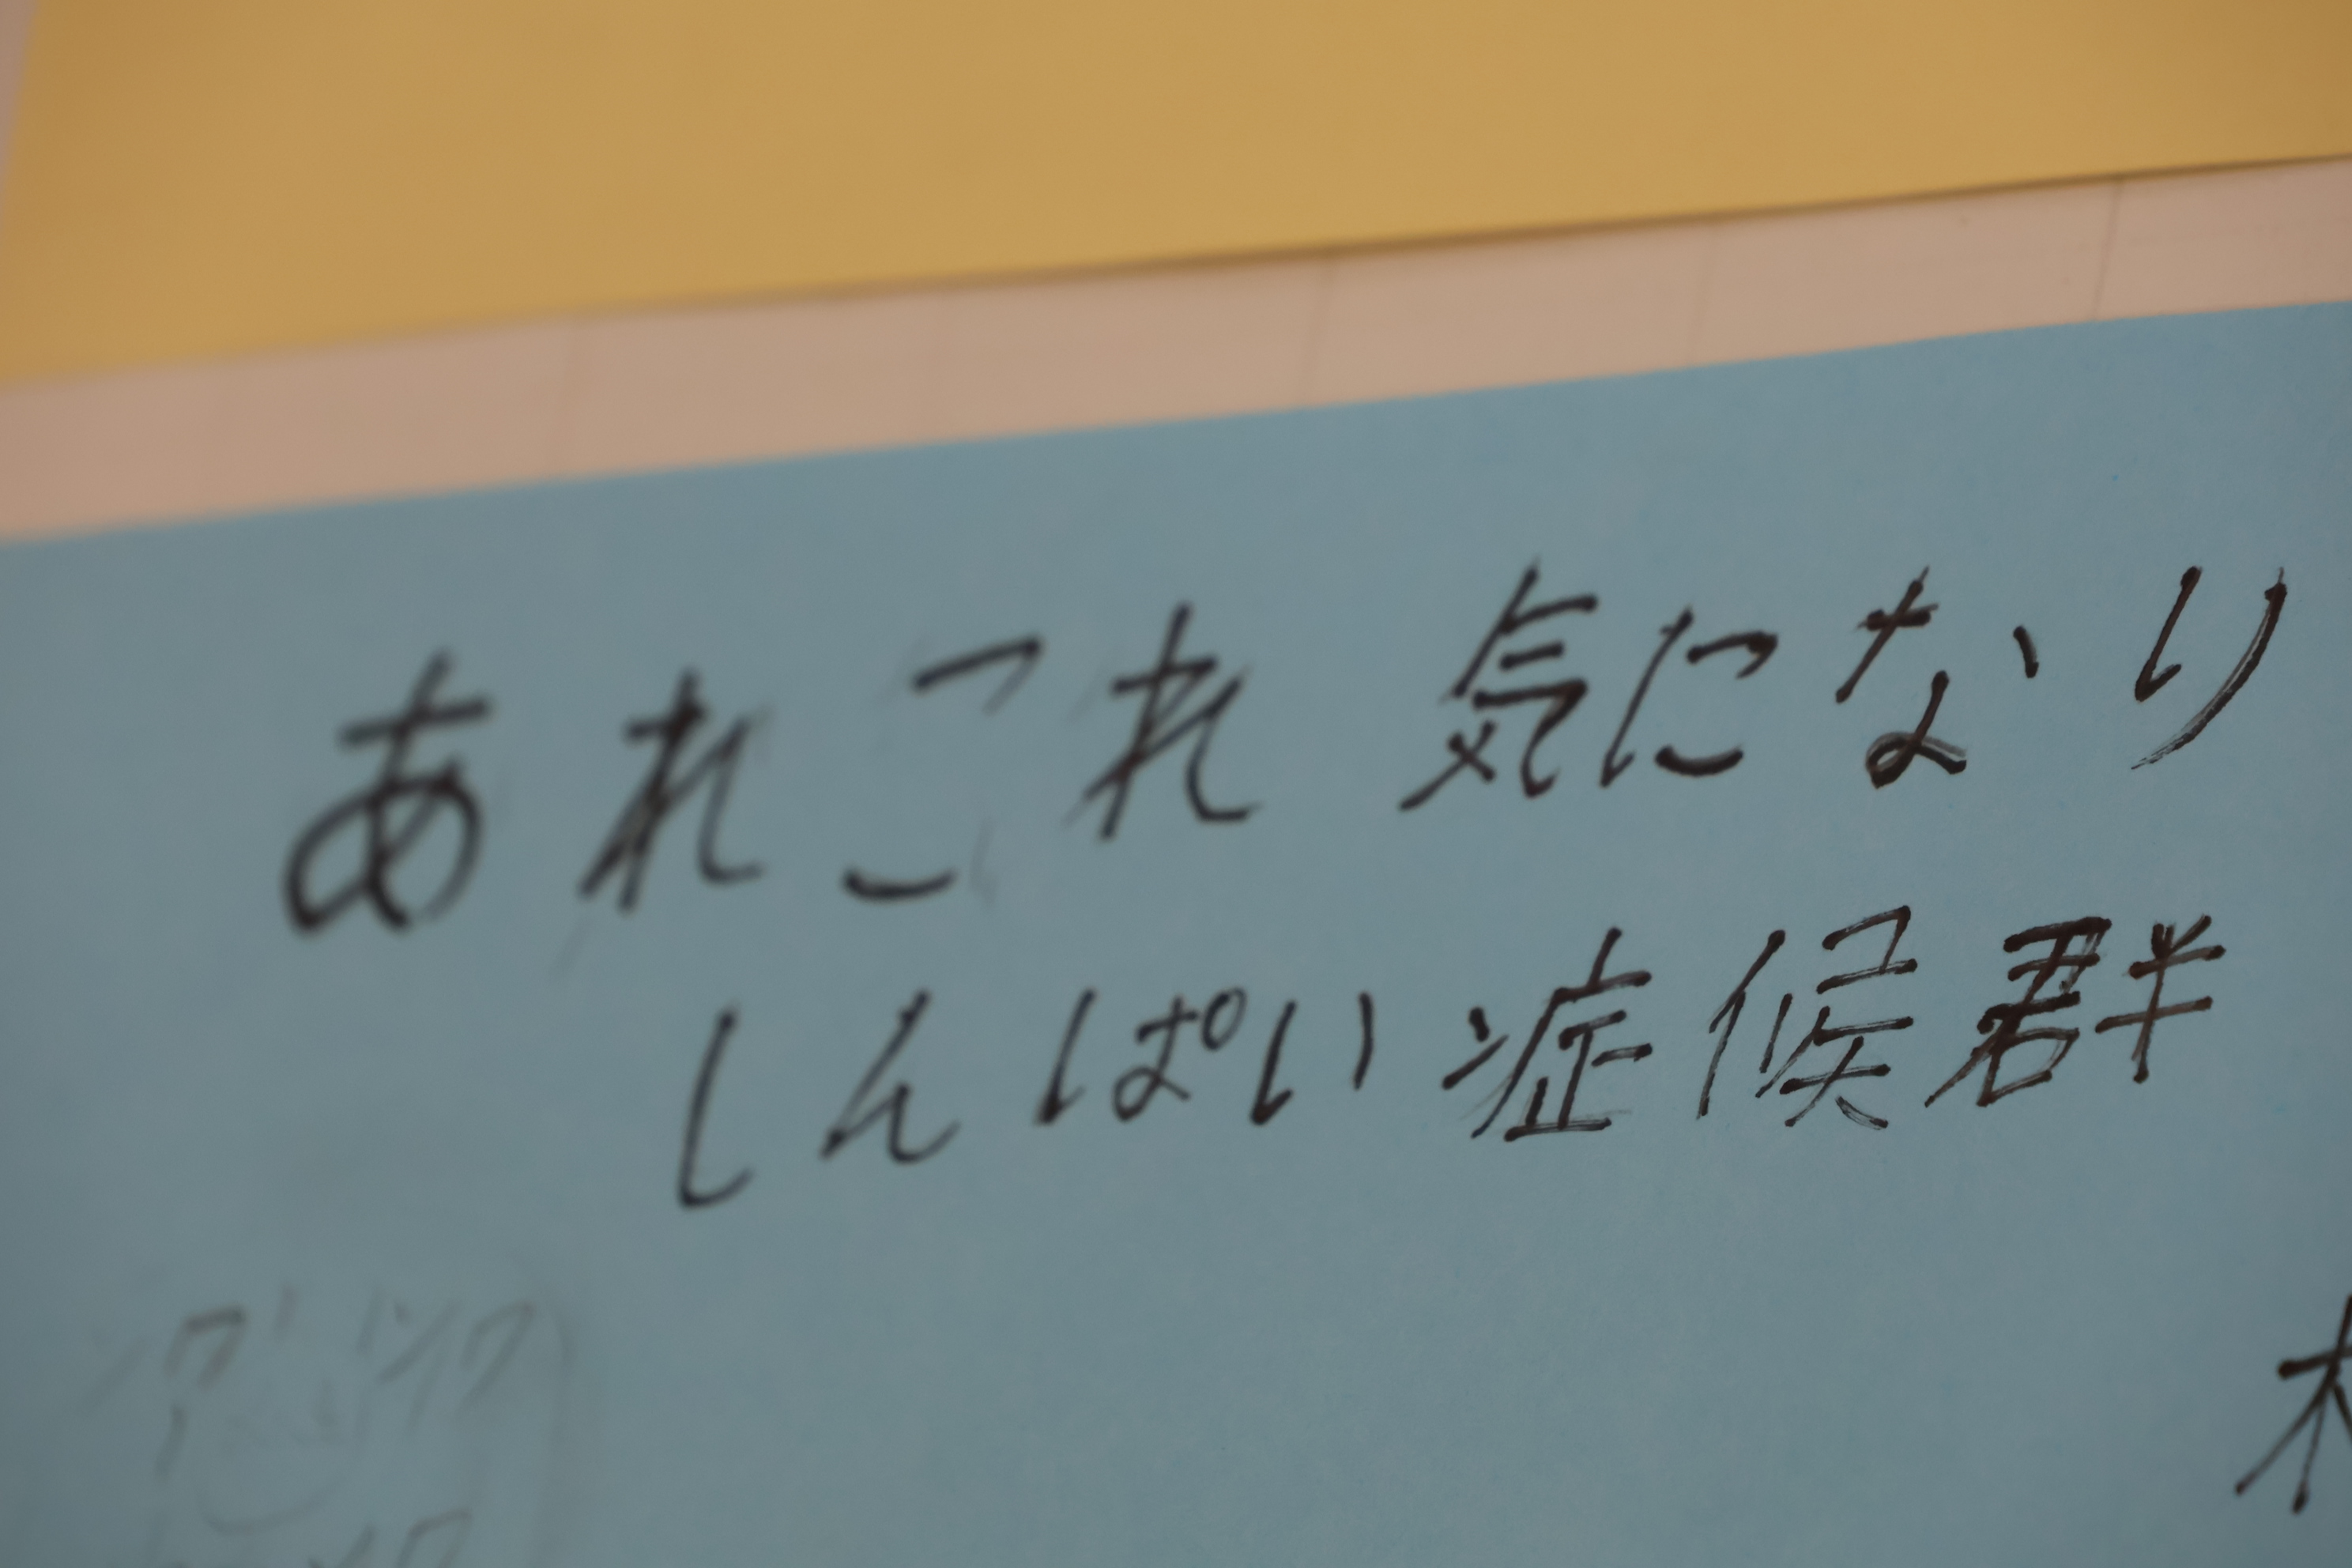 あれこれ 気になり
しんぱい症候群